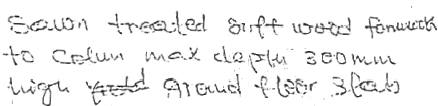 Sawn treated soft wood fomwork
to Colum max depth 300mm
high ground floor Slab